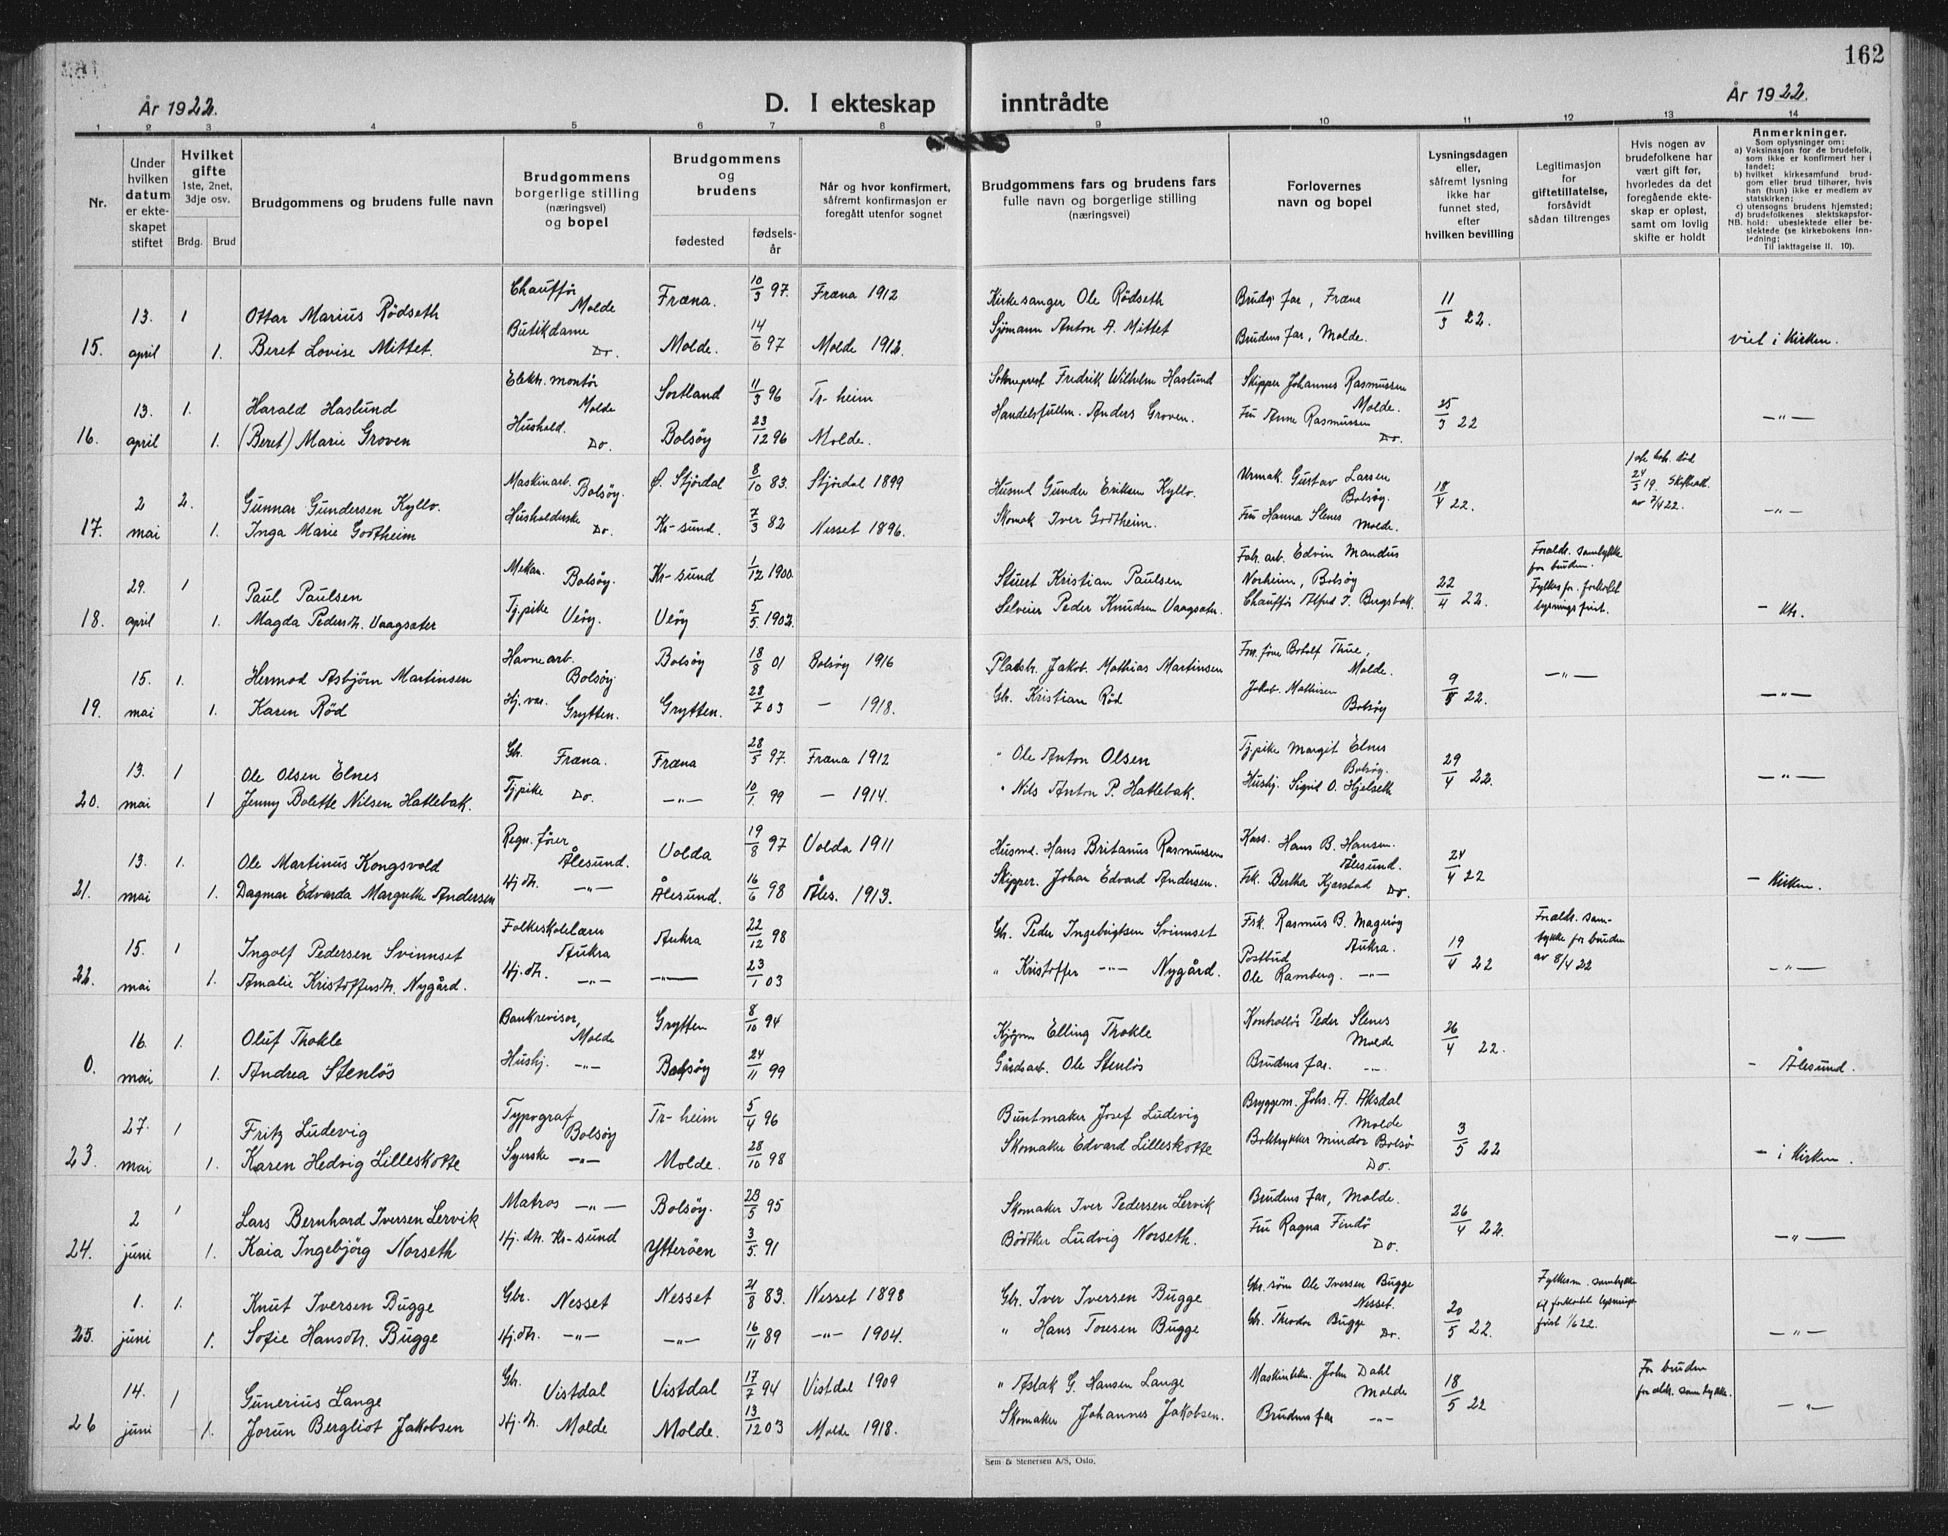 162
År 1922. D. I ekteskap inntrådte År 1922.
1 2 3 4 5 6 7 8 9 10 11 12 13 14
Nr.
Under hvilken datum er ekteskapet stiftet
Hvilket gifte 1ste, 2net, 3dje osv.
Brdg. Brud
Brudgommens og brudens fulle navn
Brudgommens borgerlige stilling (næringsvei) og bopel
Brudgommens og brudens
fødested fødsels-år
Når og hvor konfirmert, såfremt konfirmasjon er foregått utenfor sognet
Brudgommens fars og brudens fars fulle navn og borgerlige stilling (næringsvei)
Forlovernes navn og bopel
Lysningsdagen eller, såfremt lysning ikke har funnet sted, efter hvilken bevilling
Legitimasjon for giftetillatelse, forsåvidt sådan tiltrenges
Hvis nogen av brudefolkene har vært gift før, hvorledes da det foregående ekteskap er opløst, samt om lovlig skifte er holdt
Anmerkninger.
Som oplysninger om:
a) Vaksinasjon for de brudefolk, som ikke er konfirmert her i landet;
b) hvilket kirkesamfund brudgom eller brud tilhører, hvis han (hun) ikke er medlem av statskirken;
c) utensogns brudens hjemsted;
d) brudefolkenes slektskapsforhold: ubeslektede eller beslektede (se kirkebokens innledning;
NB.
Til iakttagelse II. 10).
13. 1 Ottar Marius Rödseth Chauffør Molde Fræna. 10/3 97. Fræna 1912 Kirkesanger Ole Rödseth Brudg. far, Fræna 11/3 22.
15. april 1. Beret Lovise Mittet. Butikdame Do. Molde. 14/6 97 Molde 1912. Sjömann Anton A. Mittet Brudens far, Molde. viet i Kirken.
13. 1. Harald Haslund Elektr. montör Molde Sortland 11/3 96 Tr-heim Sokneprest Fredrik Wilhelm Haslund Skipper Johannes Rasmussen Molde. 25/3 22
16. april 1. (Beret) Marie Groven Hushold. Do. Bolsöy 23/12 96 Molde. Handelsfullm. Anders Groven. Fru Anne Rasmussen Do. —"—
2 2. Gunnar Gundersen Kyllo. Maskinarb. Bolsöy. Ö. Stjördal 8/10 83. Stjördal 1899 Husmd Gunder Eriksen Kyllo. Urmak. Gustav Larsen Bolsöy. 18/4 22. 24/3 19. av 7/4 22.
17. mai 1. Inga Marie Godtheim Husholderske Do. Kr-sund. 7/3 82 Nesset 1896. Skomak Iver Godtheim. Fru Hanna Slenes Molde. —"—
29. 1 Paul Paulsen Mekan. Bolsöy. Kr-sund 1/12 1900. Stuert Kristian Paulsen Fabr. arb. Edvin Mandus Norheim, Bolsöy 22/4 22. Foraldr. samtykke for bruden.
18. april 1. Magda Pedersdtr. Vaagsæter Tj.pike Veöy. Veöy 5/5 1902. Selveier Peder Knudsen Vaagsæter. Chauffør Alfred J. Bergsbak. Fylkesm. forkortet lysningsfrist – Kh.
15. 1. Hermod Asbjörn Martinsen Havnearb. Bolsöy Bolsöy 18/8 01 Bolsöy 1916 Jakob Mathias Martinsen Molde. 9/ 22. —"—
19. mai 1. Karen Röd Grytten. Grytten. 28/7 03 — 1918. Gbr. Kristian Röd Jakob Mathisen Bolsöy —"—
13. 1 Ole Olsen Elnes Gbr. Fræna. Fræna 28/5 97. Fræna 1912 " Ole Anton Olsen Tj.pike Margit Elnes Bolsöy. 29/4 22.
20. mai 1 Jenny Bolette Nilsen Hatlebak. Tj.pike Do. —"— 10/1. 99 — 1914. " Nils Anton P. Hatlebak. Hushj. Sigrid O. Hjelseth —"—
13. 1. Ole Martinus Kongsvold Regn. förer Ålesund. Volda 19/8 97 Volda 1911 Husmd. Hans Britanus Rasmussen Kass. Hans B. Hansen Ålesund. 24/4 22
21. mai 1. Dagmar Edvarda Margrethe Andersen Hj.dt. —"— Ålesund. 16/6 98 Åles. 1913. Skipper. Johan Edvard Andersen. Frk. Bertha Kjerstad Do. – Kirken.
15. 1 Ingolf Pedersen Svinnset Folkeskolelærer Aukra Aukra 22/12 98 Gbr. Peder Ingebrigtsen Svinnset Fsk. Rasmus B. Mageröy Aukra. 19/4 22 Foraldr. samtykke for bruden av 8/4 22
22. mai 1. Amalie Kristoffersdtr. Nygård. Hj.dt. —"— —"— 23/1 03 " Kristoffer —"— Nygård. Postbud Ole Ramberg. —"— —"—
16. 1. Oluf Thokle Bankrevisor, Molde Grytten 8/10 94 Kjöpm Elling Thokle Kontrollör Peder Slenes Molde 26/4 22.
0. mai 1. Andrea Stenlös Hushj. —"— Bolsöy 24/11 99 Gårdsarb. Ole Stenlös Brudens far. —"— – Ålesund.
27. 1 Fritz Ludevig Typograf Bolsöy Tr-heim 5/4 96 Buntmaker Josef Ludevig Bryggem. Johs. A. Aksdal Molde 3/5 22
23. mai 1. Karen Hedvig Lilleskotte Syerske —"— Molde. 28/10 98 Skomaker Edvard Lilleskotte Boktrykker Mindor Bolsö Do. – i Kirken.
2 1 Lars Bernhard Iversen Lervik Matros —"— Bolsöy. 23/5 95 Skomaker Iver Pedersen Lervik Brudens far, Molde. 26/4 22.
24. juni 1. Kaia Ingebjörg Norseth Hj.dtr. Kr-sund Ytteröen 3/5. 91 Bödtker Ludvig Norseth. Fru Ragna Findö Do. —"—
1. 1. Knut Iversen Bugge Gbr. Nesset Nesset 21/8 83. Nesset 1898 Gbr. Iver Iversen Bugge Gbr. søn Ole Iversen Bugge Nesset. 20/5 22. Fylkesm. samtykke forkortet lysningsfrist 1/6 22.
25. juni 1. Sofie Hansdtr. Bugge Hj.dtr. —"— —"— 16/11 89 —"— 1904. " Hans Toresen Bugge Gbr. Theodor Bugge Do. —"—
14. 1 Gunerius Lange Gbr. Vistdal Vistdal 17/7 94 Vistdal 1909 " Aslak G. Hansen Lange John Dahl Molde 18/5 22 For bruden foraldr. samtykke.
26 juni 1. Jorun Bergliot Jakobsen Hj.dt. Molde Molde. 13/12 03 Molde 1918. Skomaker Johannes Jakobsen. Brudens far —"— —"—
Sem & Stenersen A/S, Oslo.